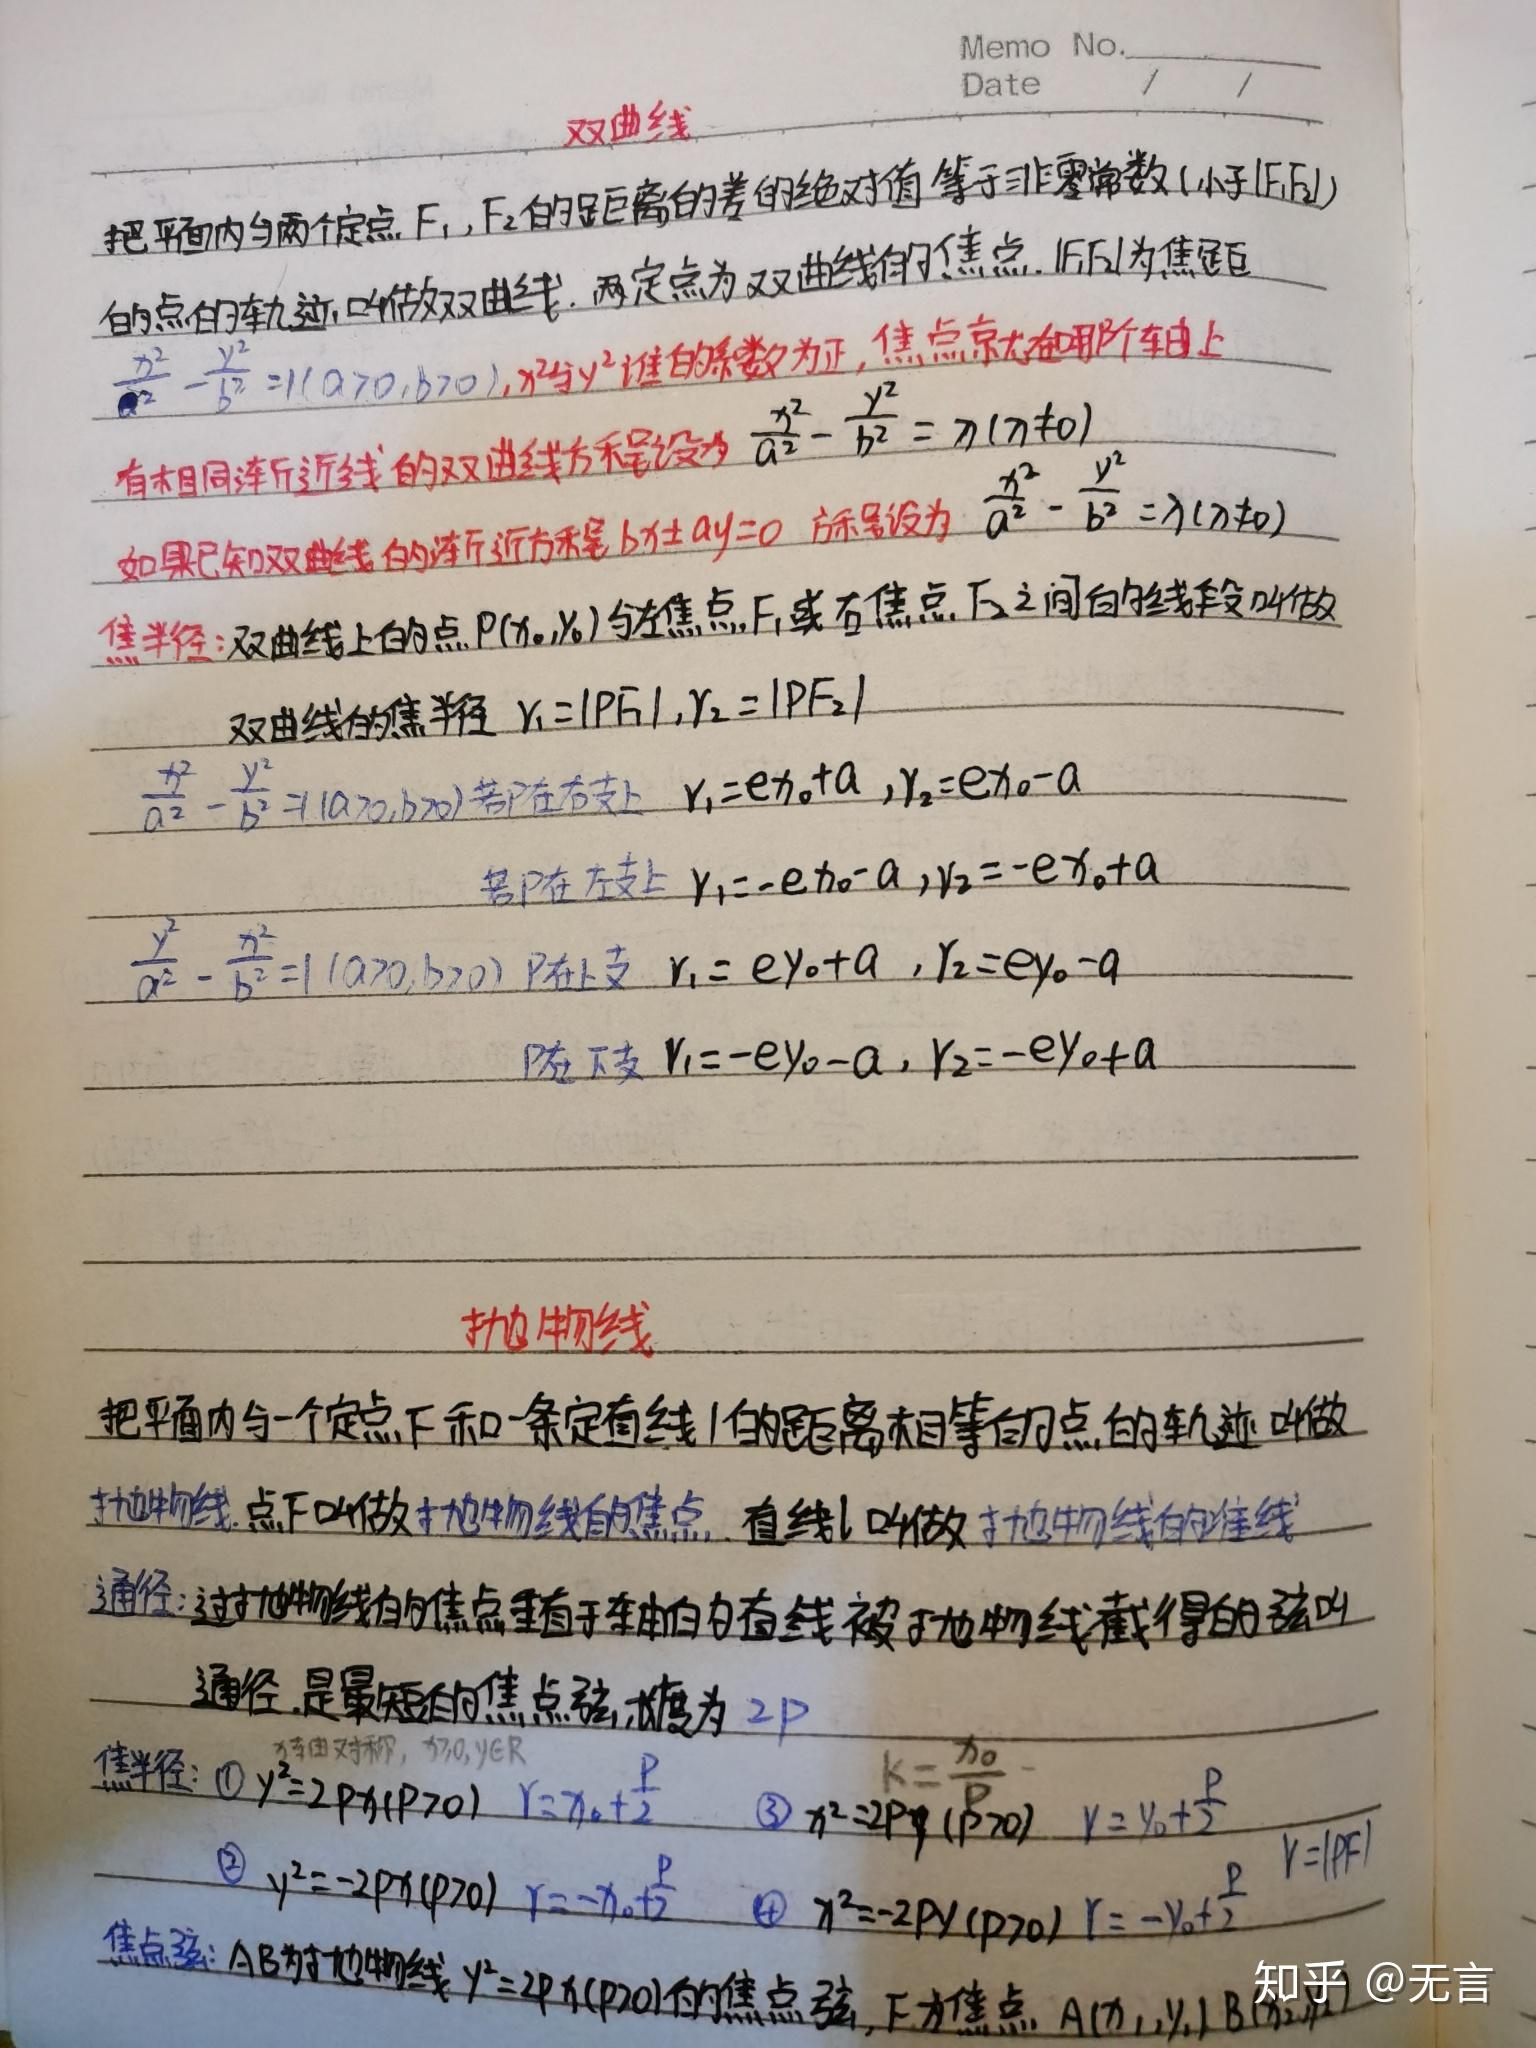 Memo No.
Date / /
双曲线
把平面内与两个定点F₁,F₂的距离的差的绝对值等于非零常数(小于|F₁F₂|)
的点的轨迹叫做双曲线.两定点为双曲线的焦点.|F₁F₂|为焦距
x²/a² - y²/b² = 1 (a>0,b>0),x²与y²谁的系数为正,焦点就在哪个轴上
有相同渐近线的双曲线方程设为 x²/a² - y²/b² = λ(λ≠0)
如果已知双曲线的渐近方程 bx±ay=0 方程设为 x²/a² - y²/b² = λ(λ≠0)
焦半径:双曲线上的点P(x₀,y₀)与左焦点F₁或右焦点F₂之间的线段叫做
双曲线的焦半径 r₁=|PF₁|,r₂=|PF₂|
x²/a² - y²/b² = 1 (a>0,b>0) 若P在右支上 r₁=ex₀+a ,r₂=ex₀-a
若P在左支上 r₁=-ex₀-a ,r₂=-ex₀+a
y²/a² - x²/b² = 1 (a>0,b>0) P在上支 r₁=ey₀+a ,r₂=ey₀-a
P在下支 r₁=-ey₀-a, r₂=-ey₀+a
抛物线
把平面内与一个定点F和一条定直线l的距离相等的点的轨迹叫做
抛物线.点F叫做抛物线的焦点.直线l叫做抛物线的准线
通径:过抛物线的焦点垂直于轴的直线被抛物线截得的弦叫
通径.是最短的焦点弦,长度为2p
x轴对称, x≥0,y∈R k=x₀/p
焦半径:① y²=2px(p>0) r=x₀+p/2 ③ x²=2py(p>0) r=y₀+p/2
r=|PF|
② y²=-2px(p>0) r=-x₀+p/2 ④ x²=-2py(p>0) r=-y₀+p/2
焦点弦:AB为抛物线y²=2px(p>0)的焦点弦,F为焦点 A(x₁,y₁) B(x₂,y₂)
知乎 @无言